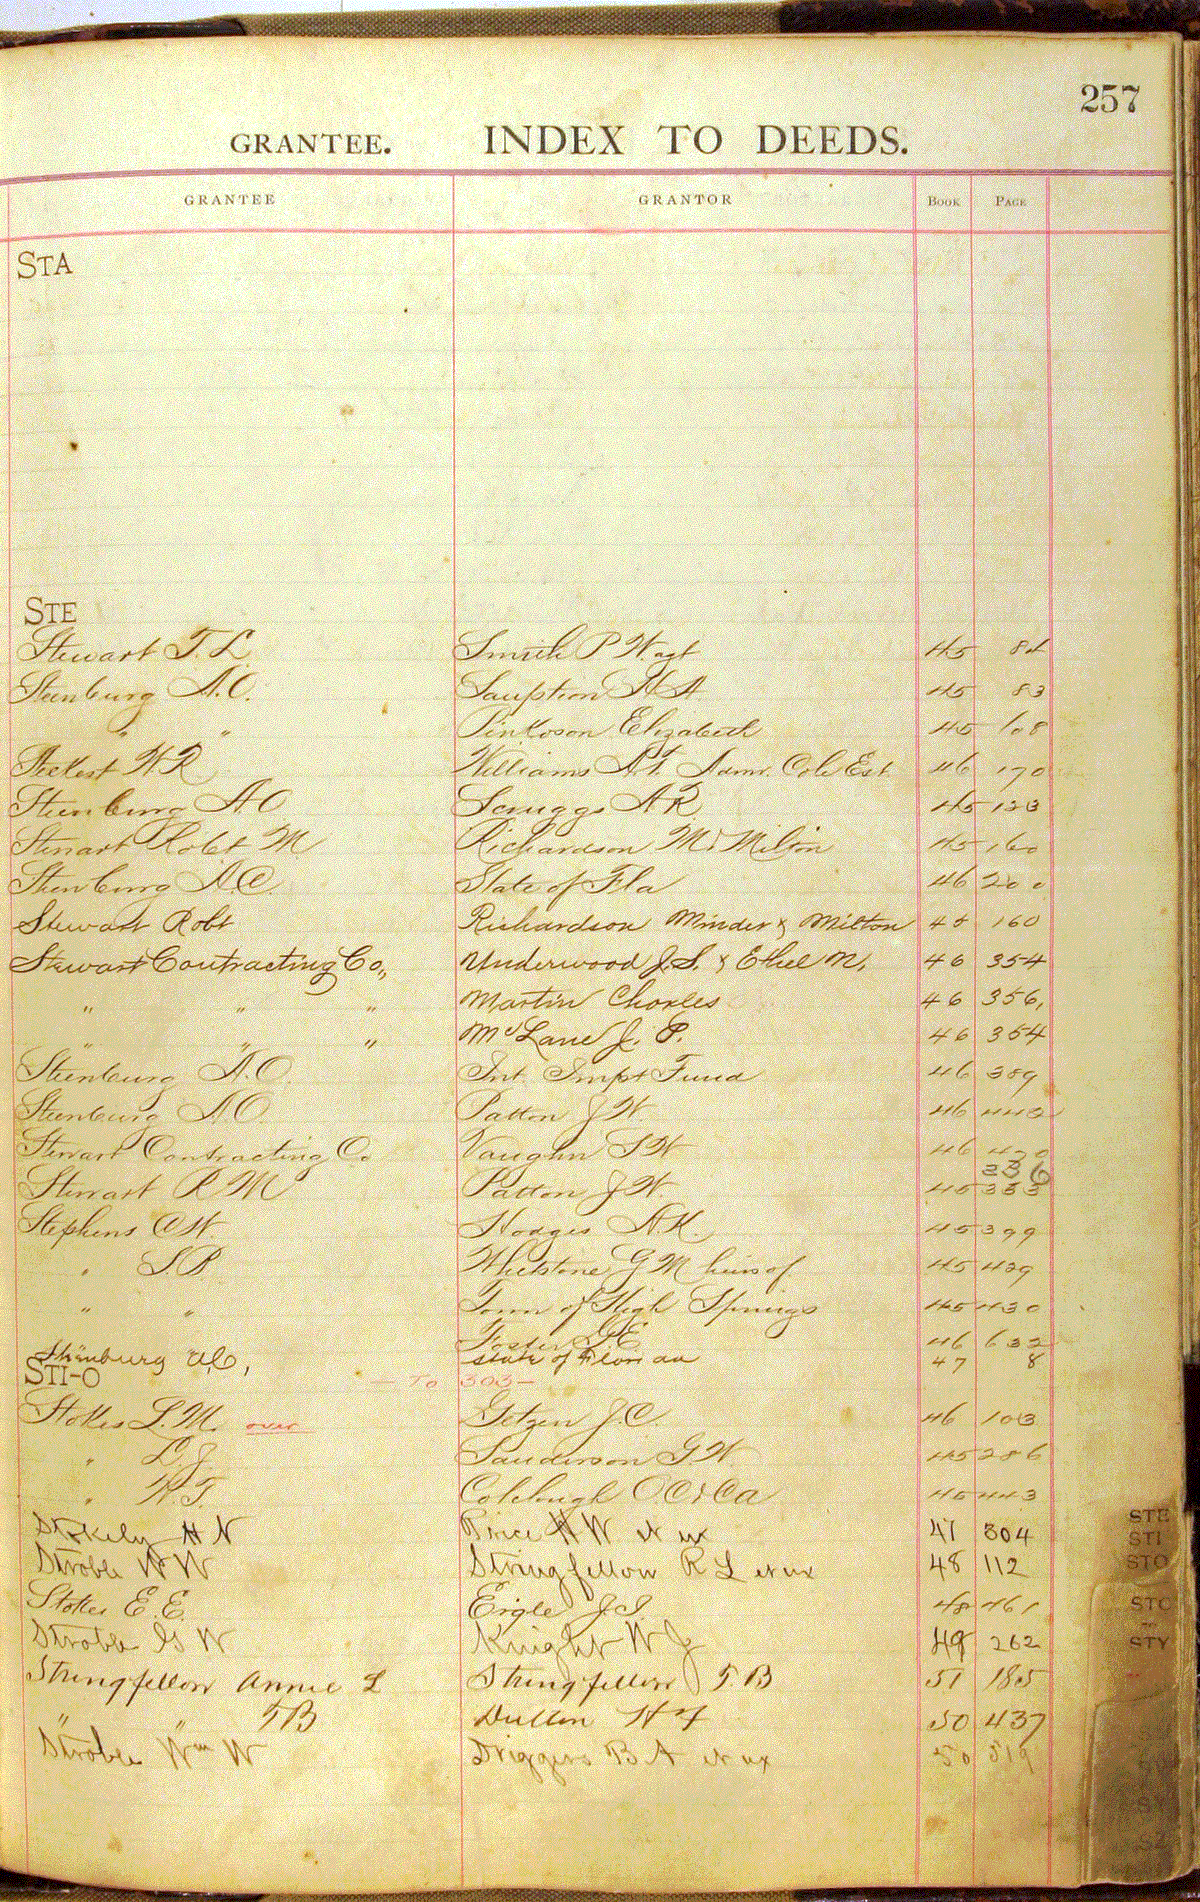 257
GRANTEE. INDEX TO DEEDS.
GRANTEE GRANTOR BOOK PAGE
STA
STE
Stewart T. L. Smith P W. agt 45 84
Steenburg A. O. Sauption H A 45 83
" " Pinkoson Elizabeth 45 108
Steckert W R Williams Adm. Cole Est 46 170
Steenburg A. O Scruggs A R 45 123
Stewart Robt M Richardson M & Milton 45 160
Steenburg A. O. State of Fla 46 200
Stewart Robt Richardson Minder & Milton 45 160
Stewart Contracting Co., Underwood J. S. & Ethel M. 46 354
" " " Martin Charles 46 356,
" " " McLane J. P. 46 354
Steenburg A. O. Int. Impt Fund 46 389
Steenburg A. O. Patton J W. 46 442
Stewart Contracting Co Vaughn S W 46 420
336
Stewart R M Patton J W. 45 333
Stephens C W. Hodges A K. 45 399
" S. P. Whetstone G M heirs of 45 429
" " Town of High Springs 45 430
Foster G E 46 632
Steenburg A. O, State of Florida 47 8
STI-O — To 303 —
Stokes L. M. over Getzen J. C. 46 103
" L. J. Sanderson G W. 45 286
" W. T. Colclough O. C & C A 45 443
Stokely H N Price H W et ux 47 304
Stroble W W Stringfellow R L et ux 48 112
Stokes E. E. Eigle J. S. 48 461
Stroble G W Knight W J 49 262
Stringfellow Annie L Stringfellow T B 51 185
" " T B Dutton H F 50 437
Stroble Wm W Driggers B A et ux 50 519
STE
STI
STO
STO
STY
SY
SZ